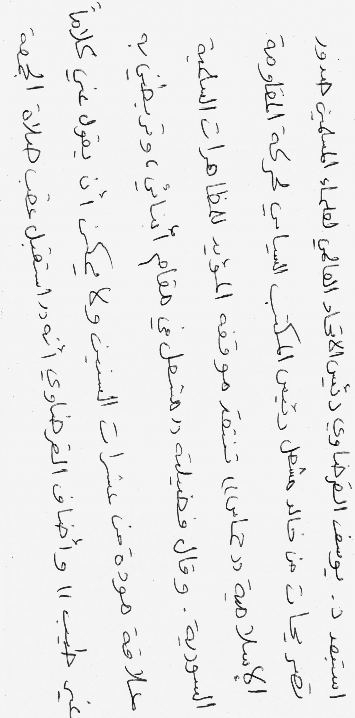 استبعد د. يوسف القرضاوي رئيس الاتحاد العالمي لعلماء المسلمين صدور
تصريحات من خالد مشعل رئيس المكتب السياسي لحركة المقاومة
الإسلامية ((حماس)) تنتقد موقفه المؤيد للمظاهرات السلمية
السورية. وقال فضيلته ((مشعل في مقام أبنائي، وتربطني به
علاقة مودة من عشرات السنين ولا يمكن أن يقول عني كلاماً
غير طيب)) وأضاف القرضاوي أنه استقبل عقب صلاة الجمعة